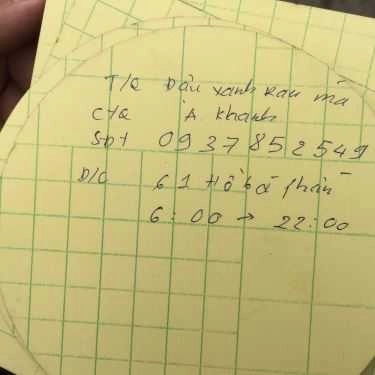 T/Q Đậu xanh Rau má
C+Q A Khanh
Sđt 0937852549
Đ/C 61 Hồ bá phấn
6:00 → 22:00